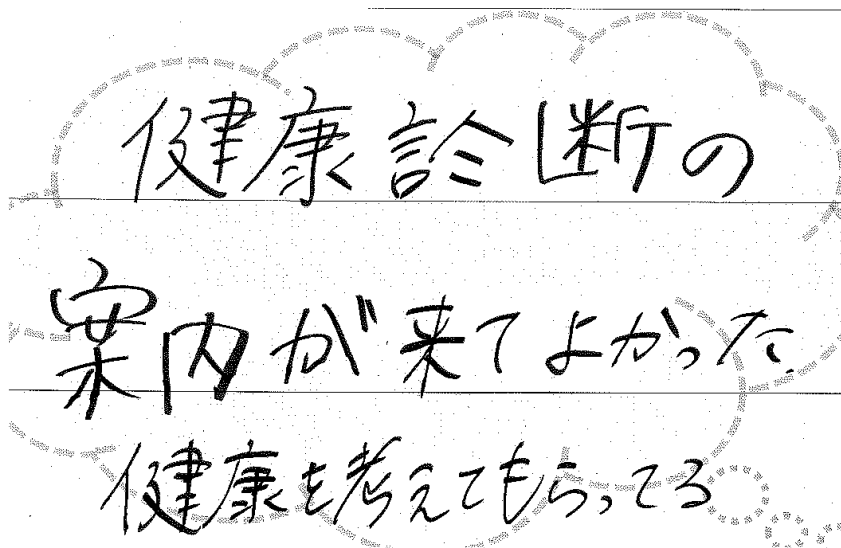 健康診断の
案内が来てよかった
健康を考えてもらってる